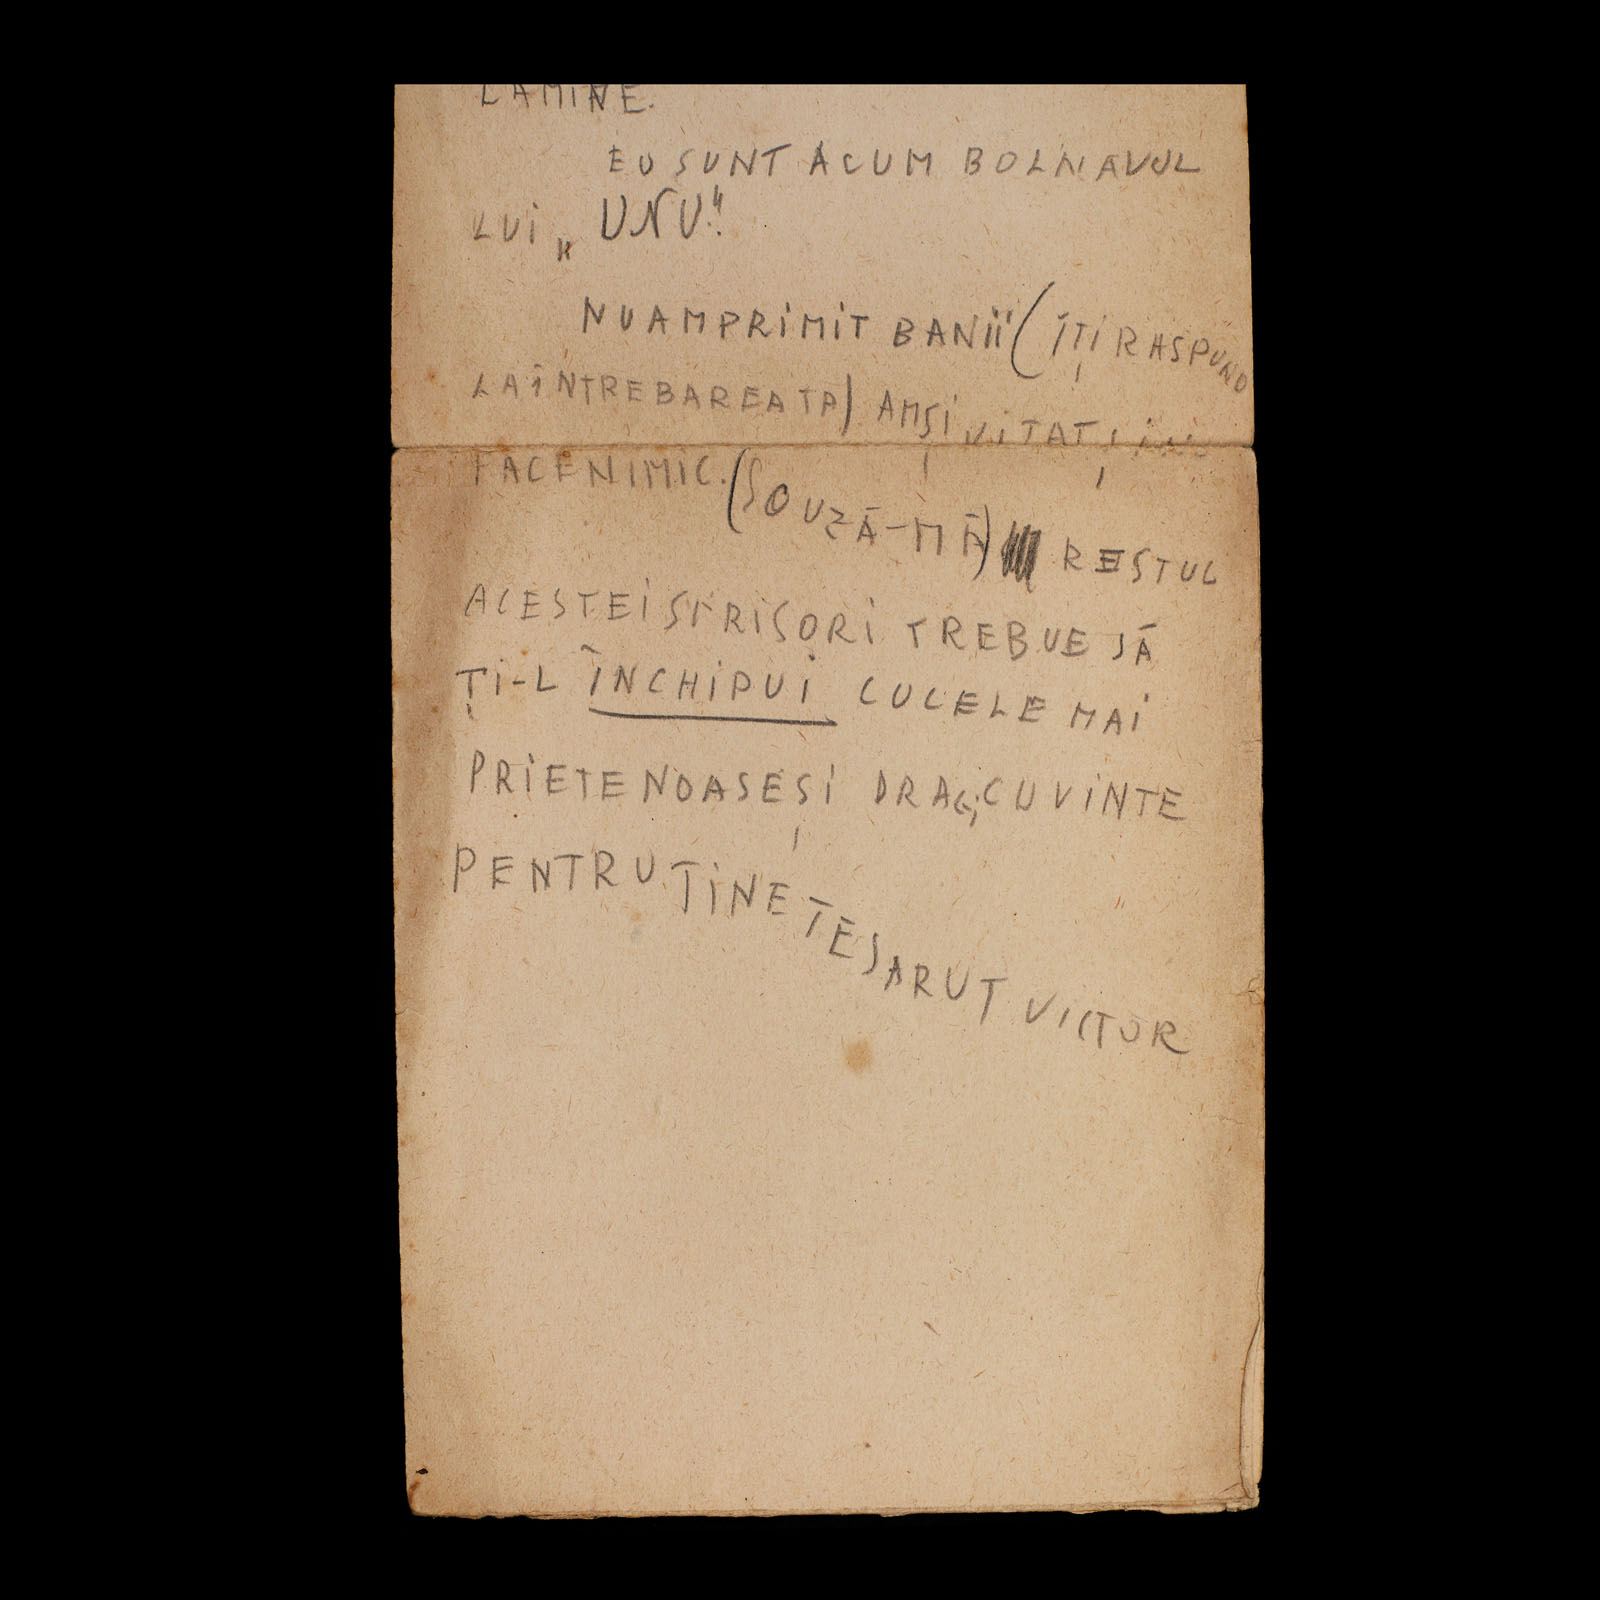 LAMINE.
EU SUNT ACUM BOLNAVUL
LUI „UNU“.
NU AM PRIMIT BANII (ÎȚI RASPUND
LA ÎNTREBAREA TA) AM ȘI UITAT, ȘI NU
FACE NIMIC. (SCUZĂ-MĂ) RESTUL
ACESTEI SCRISORI TREBUE SĂ
ȚI-L ÎNCHIPUI CU CELE MAI
PRIETENOASE ȘI DRAGI CUVINTE
PENTRU TINE TE SARUT VICTOR